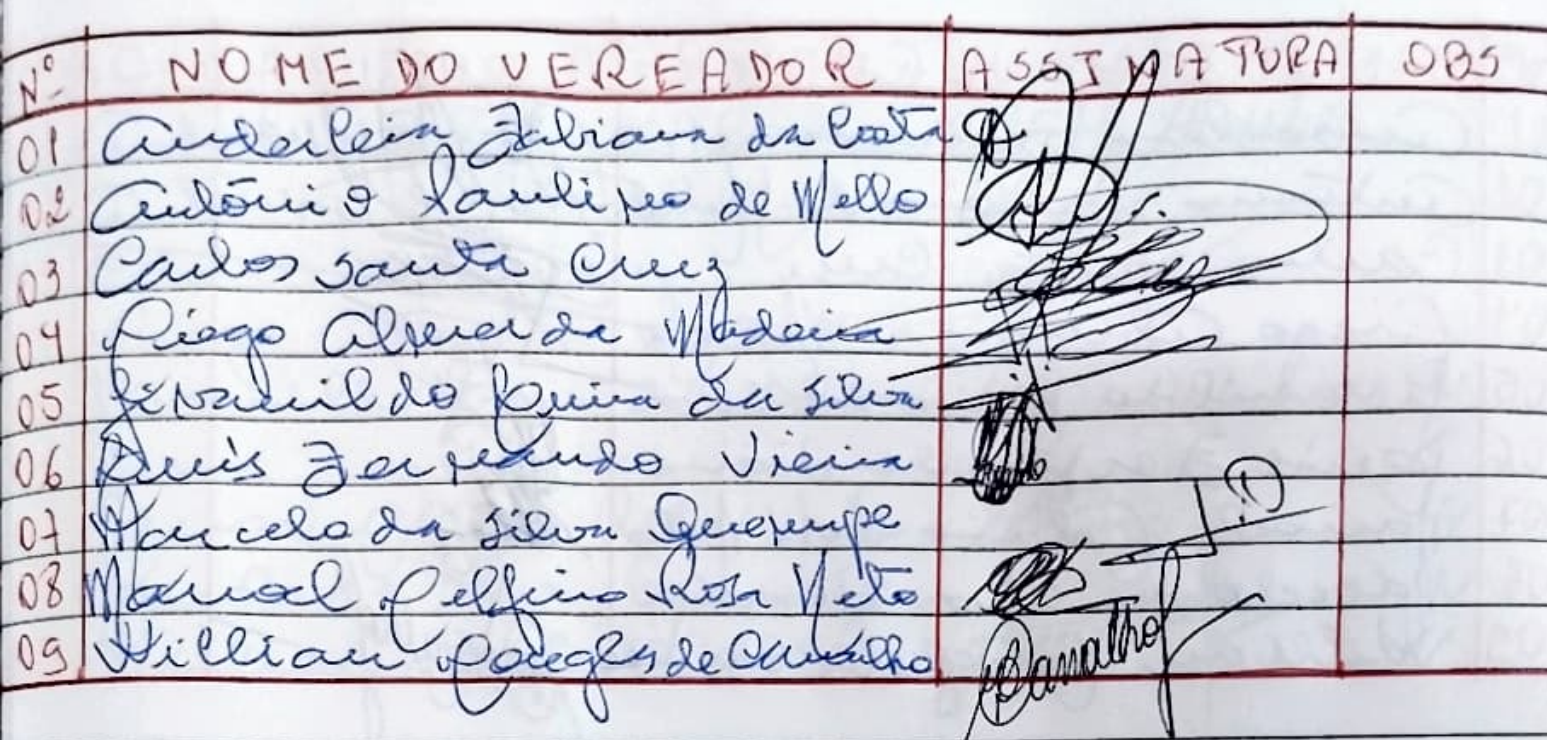 Nº NOME DO VEREADOR ASSINATURA OBS
01 Anderleia Fabiana da Costa
02 Antônio Paulino de Mello
03 Carlos Santa Cruz
04 Diego Almeida Madeira
05 Genanildo da Silva
06 Luís Fernando Vieira
07 Marcelo da Silva
08 Manoel Delfino Rosa Neto
09 Willian Douglas de Carvalho Carvalho